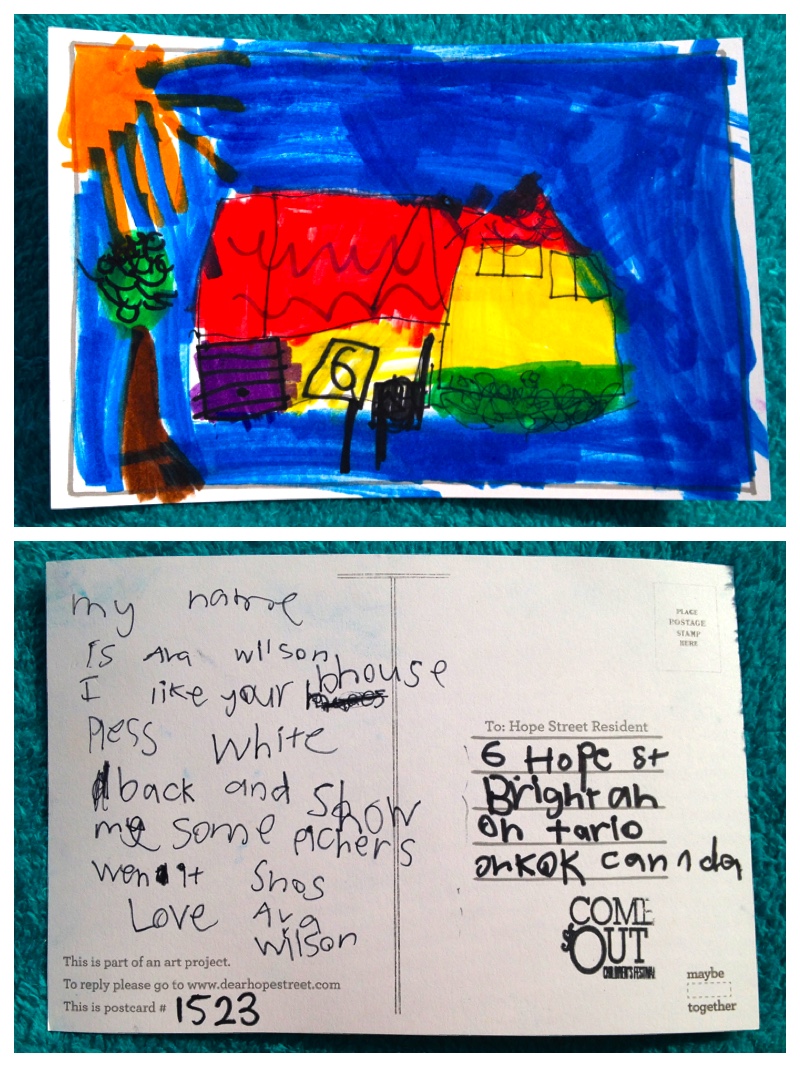 6
my name
is Ava wilson
I like your bhouse
Pless white
back and Show
me some pichers
wen it Snos
Love Ava
wilson
This is part of an art project.
To reply please go to www.dearhopestreet.com
This is postcard # 1523
PLACE
POSTAGE
STAMP
HERE
To: Hope Street Resident
6 Hope st
Brightan
on tario
onkok canada
COME
OUT
CHILDREN'S FESTIVAL
maybe
together